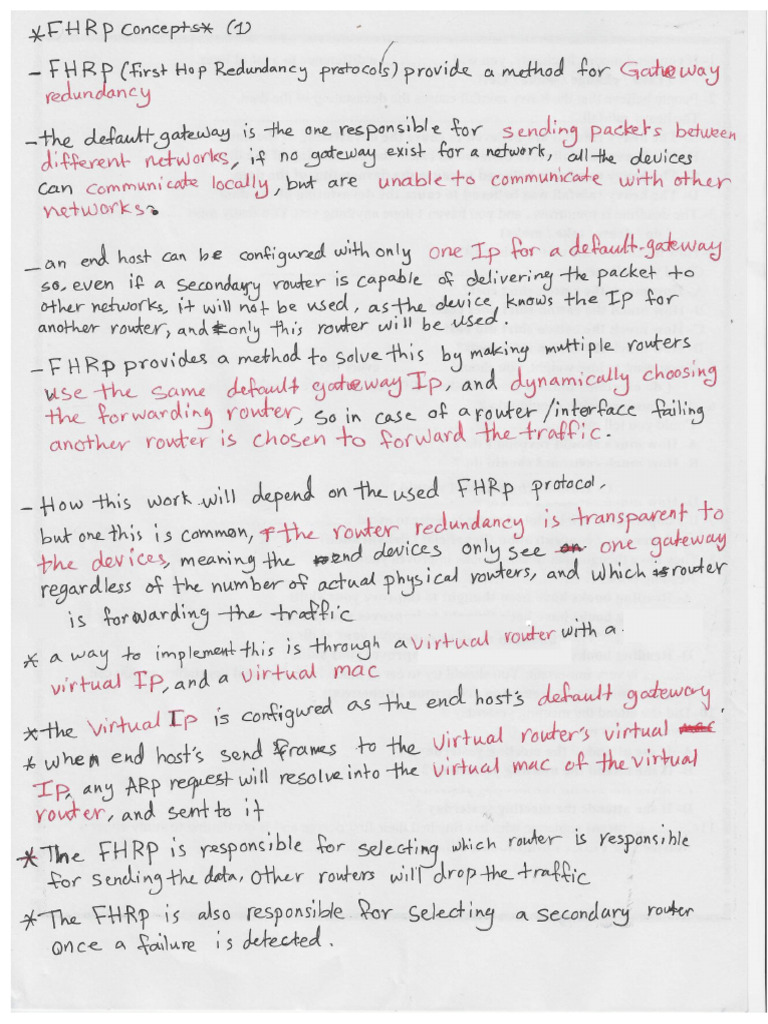 *FHRP Concepts* (1)
- FHRP (First Hop Redundancy protocols) provide a method for Gateway
redundancy
- the default-gateway is the one responsible for sending packets between
different networks, if no gateway exist for a network, all the devices
can communicate locally, but are unable to communicate with other
networks.
- an end host can be configured with only one Ip for a default-gateway
so, even if a secondary router is capable of delivering the packet to
other networks, it will not be used, as the device knows the IP for
another router, and only this router will be used.
- FHRP provides a method to solve this by making multiple routers
use the same default gateway Ip, and dynamically choosing
the forwarding router, so in case of a router/interface failing
another router is chosen to forward the traffic.
- How this work will depend on the used FHRP protocol,
but one this is common, the router redundancy is transparent to
the devices, meaning the end devices only see one gateway
regardless of the number of actual physical routers, and which router
is forwarding the traffic
* a way to implement this is through a virtual router with a
virtual IP, and a virtual mac
* the Virtual Ip is configured as the end host's default gateway
* when end host's send frames to the virtual router's virtual mac
IP, any ARP request will resolve into the virtual mac of the virtual
router, and sent to it
* The FHRP is responsible for selecting which router is responsible
for sending the data, other routers will drop the traffic
* The FHRP is also responsible for selecting a secondary router
once a failure is detected.